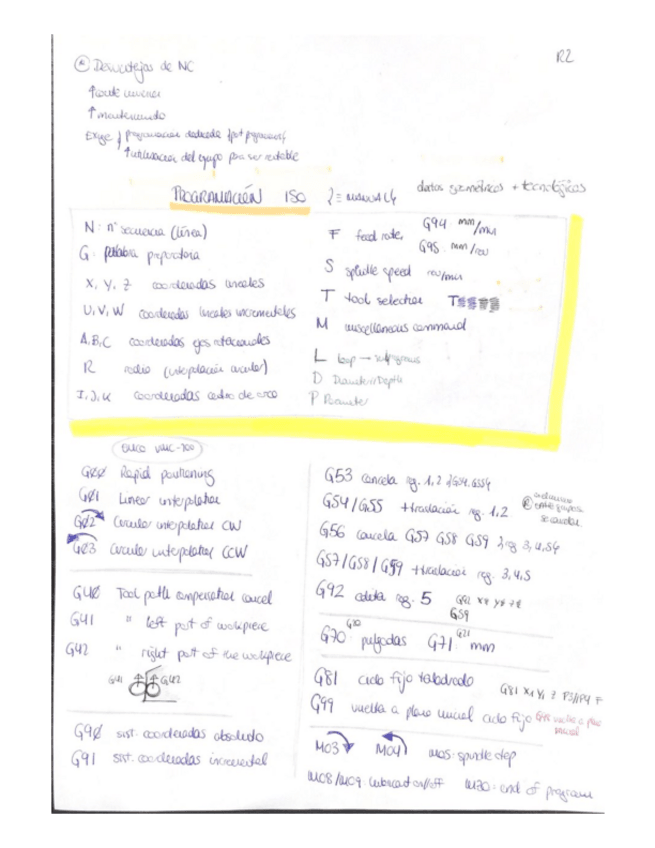 R2
* Desventajas de NC
↑ coste inversión
↑ mantenimiento
Exige { programación dedicada (part programs)
↑ utilización del equipo para ser rentable
PROGRAMACIÓN ISO
datos geométricos + tecnológicos
N: nº secuencia (línea)
G: palabra preparatoria
X, Y, Z coordenadas lineales
U, V, W coordenadas lineales incrementales
A, B, C coordenadas ejes rotacionales
R radio (interpolación circular)
I, J, K coordenadas centro de arco
F feed rate G94 mm/min
G95 mm/rev
S spindle speed rev/min
T tool selection T
M miscellaneous command
L loop → subprograms
D Diameter/Depth
P Parameter
EMCO VMC-100
GØØ Rapid positioning
GØ1 Linear interpolation
GØ2 Circular interpolation CW
GØ3 Circular interpolation CCW
G4Ø Tool path compensation cancel
G41 " left part of workpiece
G42 " right part of the workpiece
G41 G42
G9Ø sist. coordenadas absoluto
G91 sist. coordenadas incremental
G53 cancela reg. 1, 2 /G54, G55/
G54/G55 traslación reg. 1, 2
G56 cancela G57 G58 G59 reg 3, 4, 5
G57/G58/G59 traslación reg. 3, 4, 5
G92 reg. 5 G92 XØ YØ ZØ
G59
G70 pulgadas G71 mm
G20 G21
G81 ciclo fijo taladrado G81 X Y Z P3/P4 F
G99 vuelta a plano inicial ciclo fijo G98 vuelta a plano inicial
M03 M04 M05: spindle stop
M08/M09: lubricant on/off M30: end of program